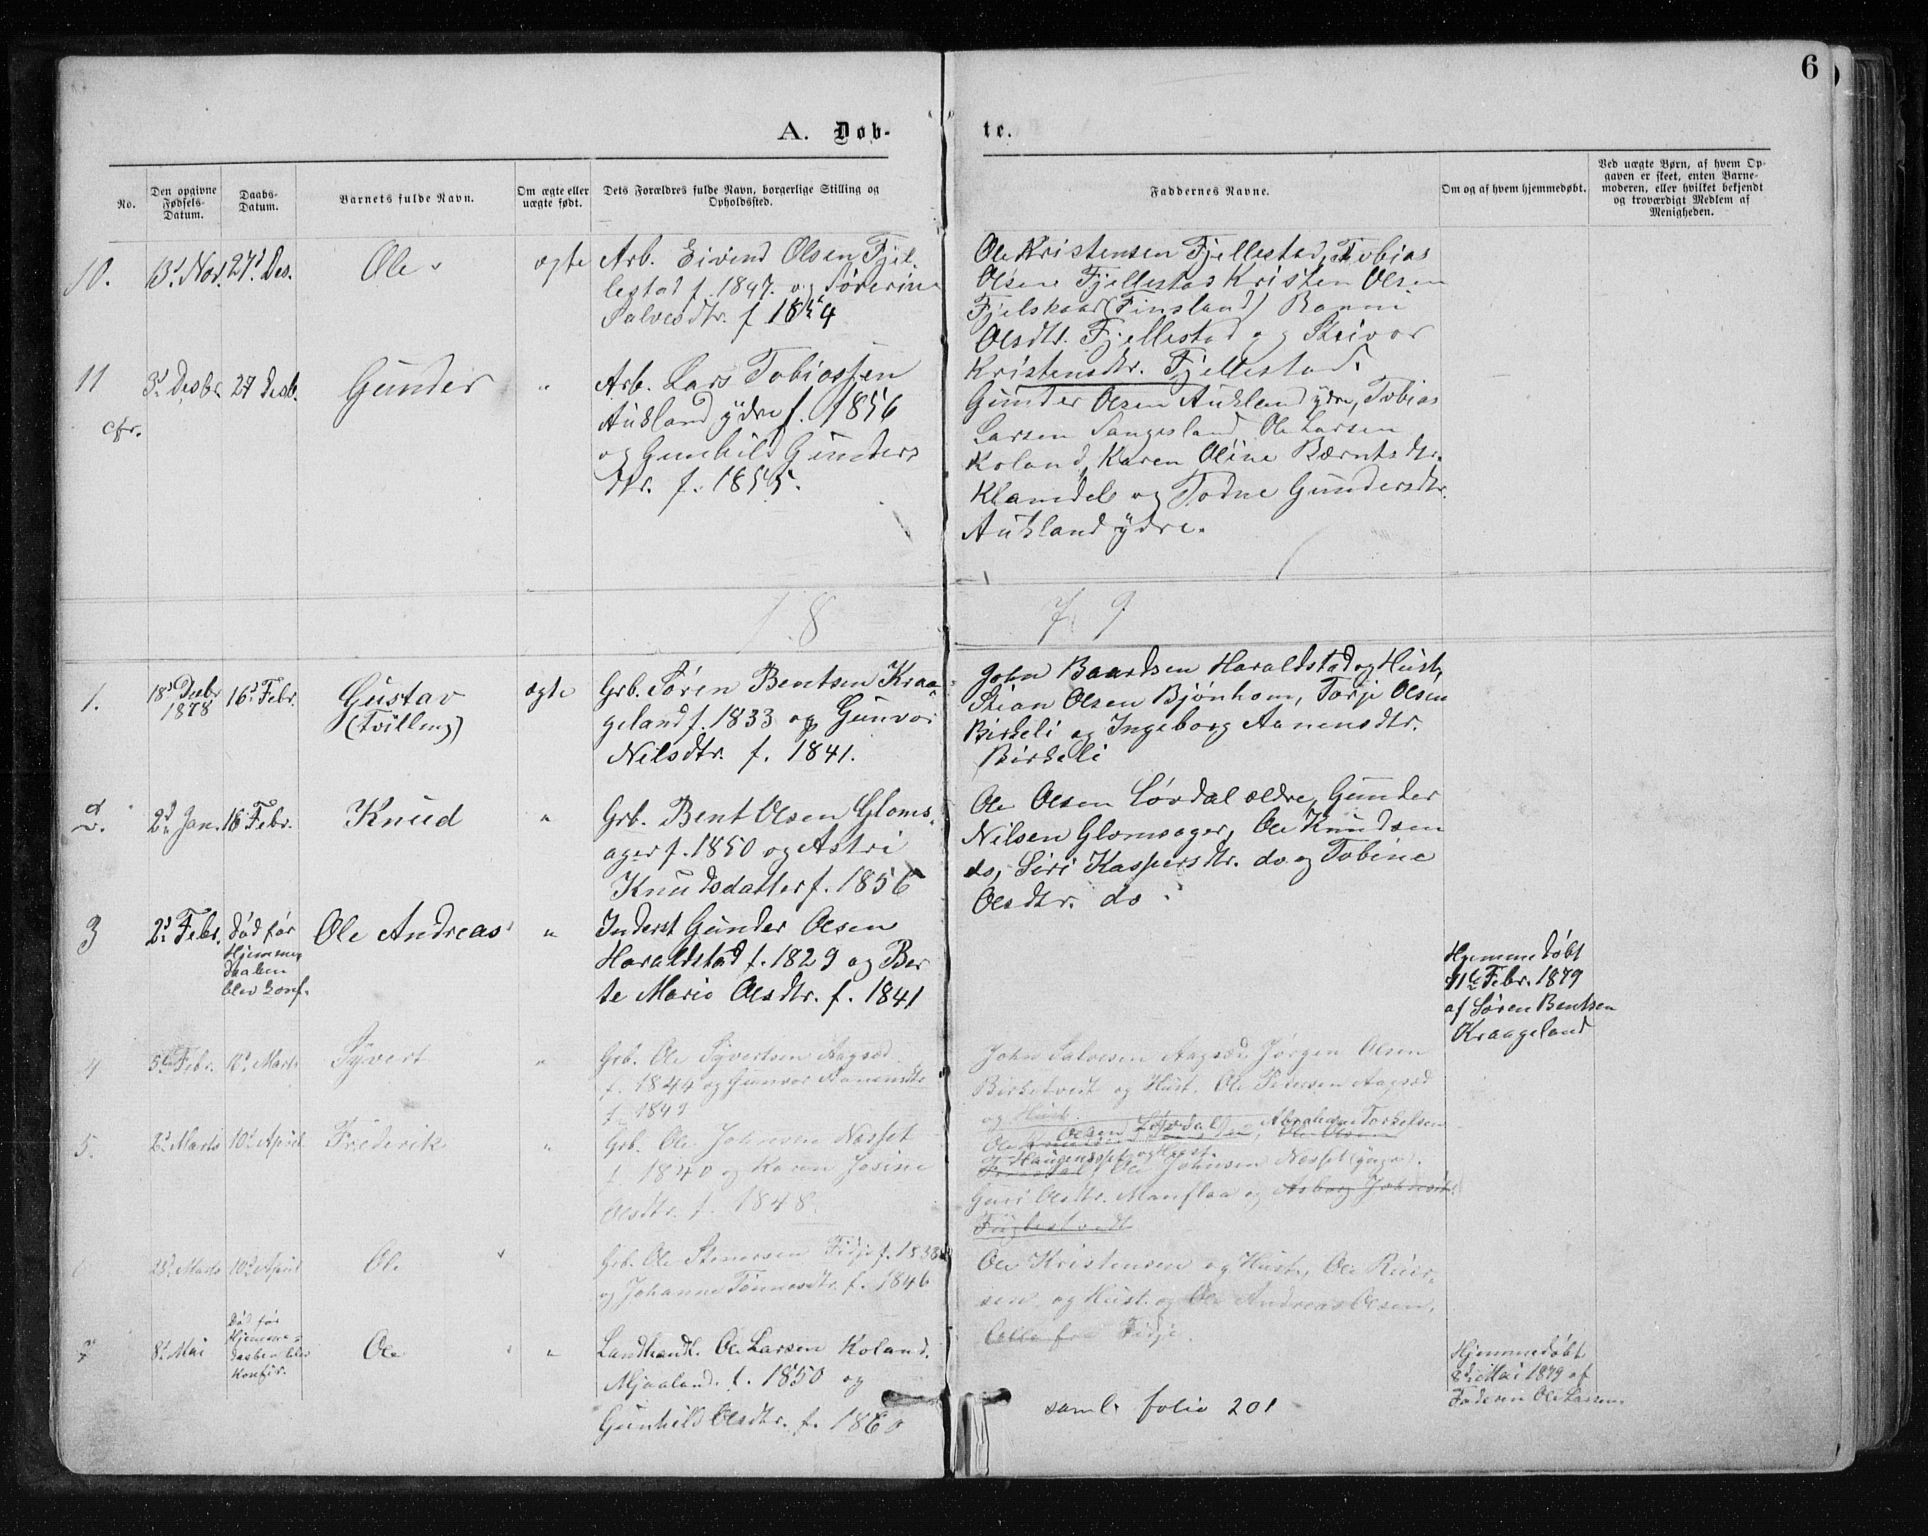 6
A. Døb-
te.
No.
Den opgivne Fødsels-Datum.
Daabs-Datum.
Barnets fulde Navn.
Om ægte eller uægte født.
Dets Forældres fulde Navn, borgerlige Stilling og Opholdssted.
Faddernes Navne.
Om og af hvem hjemmedøbt.
Ved uægte Børn, af hvem Op-
gaven er skeet, enten Barne-
moderen, eller hvilket bekjendt
og troværdigt Medlem af
Menigheden.
10.
13d Nov.
27d Des.
Ole
ægte
Arb. Eivend Olsen Fjel-
lestad f. 1847. og Sørerine
Salvesdtr. f. 1854
Ole Kristensen Fjellestad, Tobias
Olsen Fjellestad Kristen Olsen
Fjelskaar (Finsland)
Olsdtr. Fjellestad og
Kristensdtr. Fjellestad.
11
cfr.
3d Desbr.
27 Desb.
Gunder
"
Arb. Lars Tobiassen
Aukland ydre f. 1856
og Gunhild Gunders
dtr. f. 1855.
Gunder Olsen Aukland ydre, Tobias
Larsen Sangesland Ole Larsen
Koland, Karen Oline Bærntsdtr.
Klamdel og Todne Gundersdtr.
Aukland ydre.
18
79
1.
18d Desbr
1878
16d Febr.
Gustav
(Tvilling)
ægte
Grb. Søren Bentsen Kraa-
geland f. 1833 og Gunvor
Nilsdtr. f. 1841.
John Baardsen Haraldstad og Hust,
Stian Olsen Bjønhom, Torje Olsen
Birkeli og Ingeborg Aanensdtr.
Birkeli
2.
2d Jan.
16 Febr.
Knud
"
Grb. Bent Olsen Gloms-
ager f. 1850 og Astri
Knudsdatter f. 1856
Ole Olsen Løvdal ældre, Gunder
Nilsen Glomsager, Ole Knudsen
do, Siri Kaspersdtr. do og Tobine
Olsdtr. do
3
2d Febr.
Død før
Hjemme-
daaben
blev konf.
Ole Andreas
"
Inderst Gunder Olsen
Haraldstad f. 1829 og Ber-
te Marie Olsdtr. f. 1841
Hjemmedøbt
11te Febr. 1879
af Søren Bentsen
Kraageland
4
5te Febr.
Marts
Syvert
"
Grb. Ole Syvertsen Aagsæd
f. 1844 og Gunvor Aanensdtr
f. 1849
John Salvesen Aagsæd, Jørgen Olsen
Birketveit og Hust. Ole Pedersen Aagsæd
og Hust.
5.
2d Marts
10d April
Frederik
"
Grb. Ole Johnsen Næsset
f. 1840 og Karen Josine
Olsdtr. f. 1848.
Ole Olsen Løvdal, Abraham Torkelsen
Haugensgst. og Hust. Ole Johnsen Næsset (yngre).
Guri Olsdtr. Manflaa og Asborg Johnsdtr.
Fuglestvedt
23d Marts
10d April
Ole
Grb. Ole Stenersen Fidje f. 1838
og Johanne Tønnesdtr. f. 1846
Ole Kristensen og Hust, Ole Reier-
sen og Hust. og Ole Andreas Olsen,
alle fra Fidje.
7
8d Mai
Død før
Hjemme-
daaben blev
konfir.
Ole
"
Landhandl. Ole Larsen Koland.
Mjaaland. f. 1850 og
Gunhild Olsdtr. f. 1860
Hjemmedøbt
8d Mai 1879 af
Faderen Ole Larsen
saml. folio 201